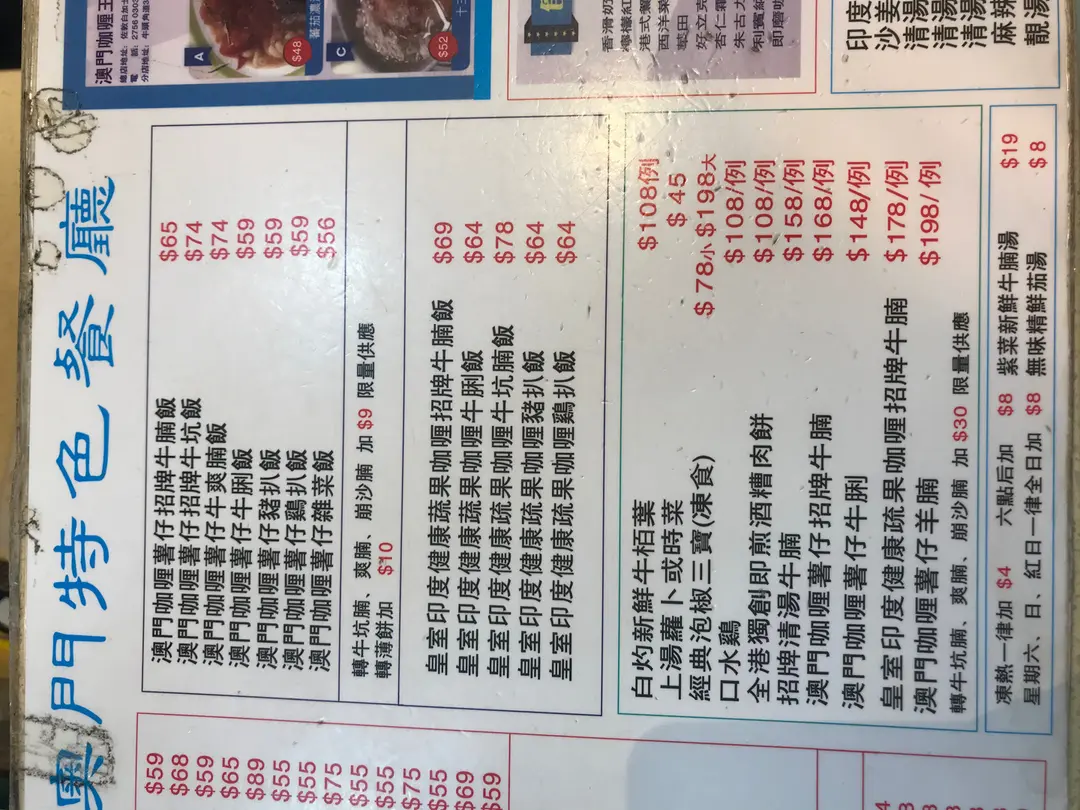 澳門特色餐廳
澳門咖喱薯仔招牌牛腩飯 $65
澳門咖喱薯仔招牌牛坑飯 $74
澳門咖喱薯仔牛爽腩飯 $74
澳門咖喱薯仔牛脷飯 $59
澳門咖喱薯仔豬扒飯 $59
澳門咖喱薯仔鷄扒飯 $59
澳門咖喱薯仔雜菜飯 $56
轉牛坑腩、爽腩、崩沙腩 加 $9 限量供應
轉薄餅加 $10
皇室印度健康蔬果咖喱招牌牛腩飯 $69
皇室印度健康蔬果咖喱牛脷飯 $64
皇室印度健康疏果咖喱牛坑腩飯 $78
皇室印度健康疏果咖喱豬扒飯 $64
皇室印度健康疏果咖喱鷄扒飯 $64
白灼新鮮牛栢葉 $108例
上湯蘿卜或時菜 $45
經典泡椒三寶(凍食) $78小 $198大
口水鷄 $108/例
全港獨創即煎酒糟肉餅 $108/例
招牌清湯牛腩 $158/例
澳門咖喱薯仔招牌牛腩 $168/例
澳門咖喱薯仔牛脷 $148/例
皇室印度健康疏果咖喱招牌牛腩 $178/例
澳門咖喱薯仔羊腩 $198/例
轉牛坑腩、爽腩、崩沙腩 加 $30 限量供應
凍熱一律加 $4 六點后加 $8 紫菜新鮮牛腩湯 $19
星期六、日、紅日一律全日加 $8 無味精鮮茄湯 $8
澳門咖喱王
A
$48
C
$52
印度
沙姜
清湯
清湯
清湯
麻辣
靚湯
$59
$68
$59
$65
$89
$55
$55
$75
$55
$55
$75
$55
$69
$59